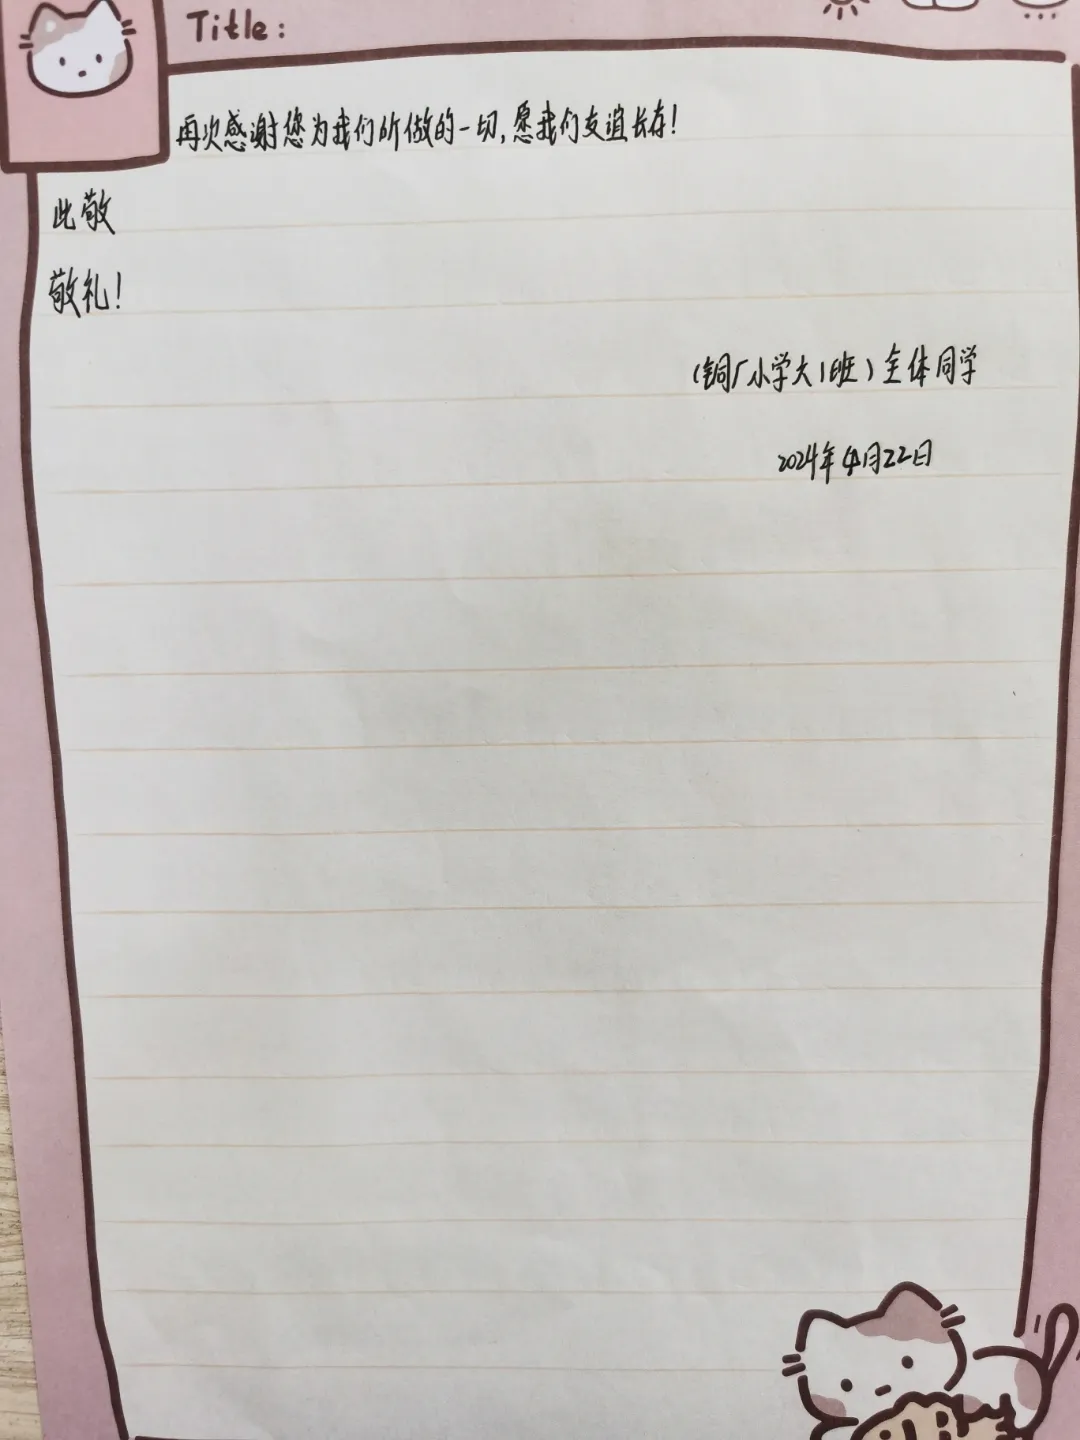 Title:
再次感谢您为我们所做的一切,愿我们友谊长存!
此敬
敬礼!
(铜厂小学大1班)全体同学
2024年4月22日